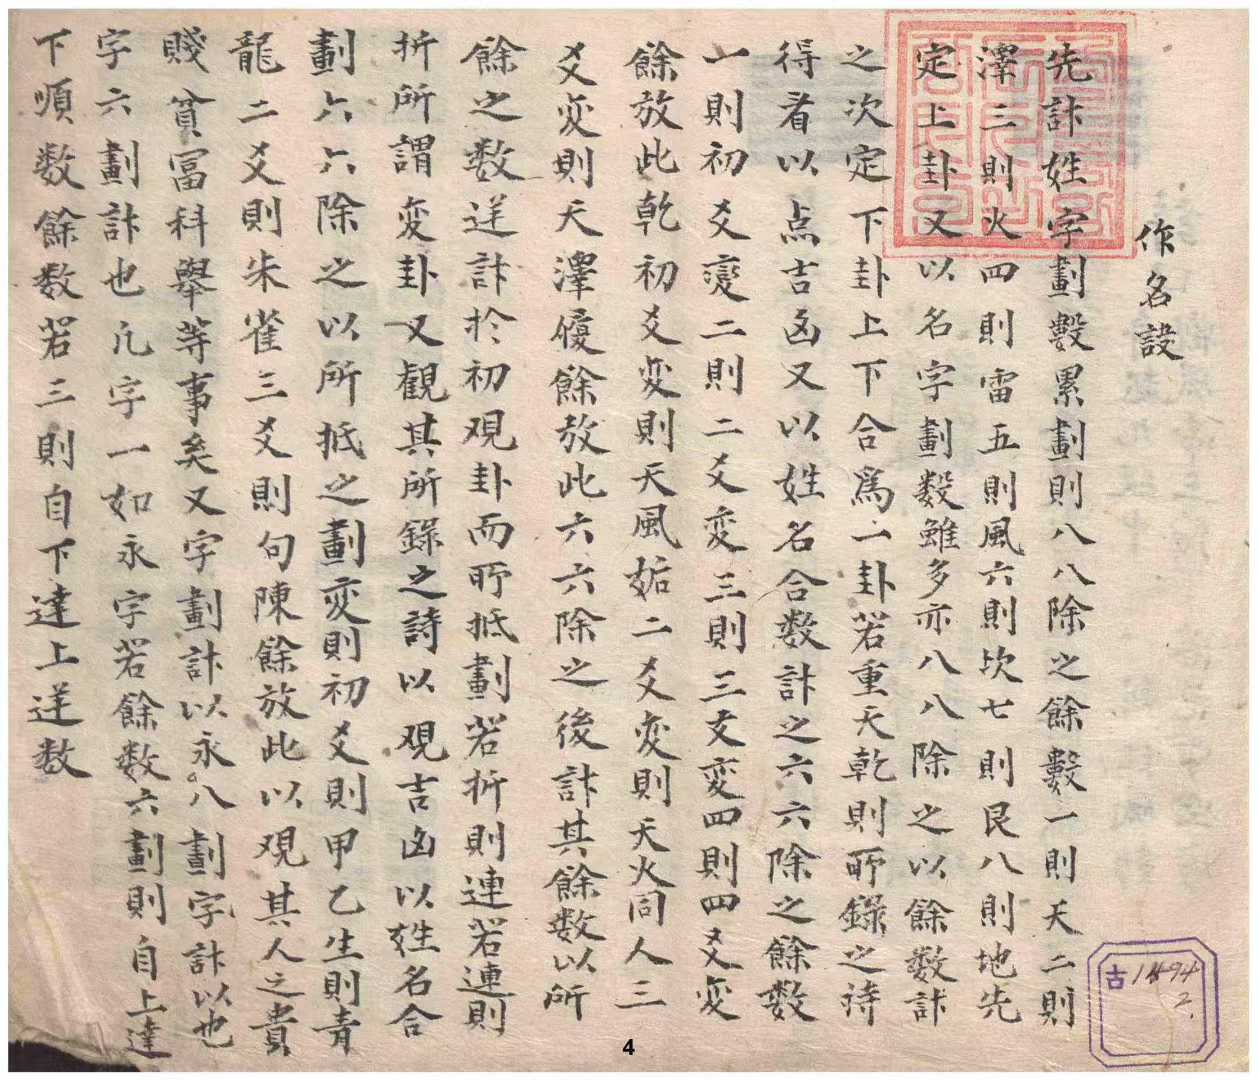 作名說
先計姓字劃數累劃則八八除之餘數一則天二則
澤三則火四則雷五則風六則坎七則艮八則地先
定上卦又以名字劃数雖多亦八八除之以餘数計
之次定下卦上下合爲一卦若重天乾則所錄之詩
得看以点吉凶又以姓名合数計之六六除之餘数
一則初爻變二則二爻变三則三爻变四則四爻变
餘放此乾初爻变則天風姤二爻变則天火同人三
爻変則天澤履餘放此六六除之後計其餘数以所
餘之数逆計於初观卦而所抵劃若折則連若連則
折所謂变卦又觀其所錄之詩以观吉凶以姓名合
劃六六除之以所抵之劃变則初爻則甲乙生則青
龍二爻則朱雀三爻則句陳餘放此以观其人之貴
賤貧冨科舉等事矣又字劃計以永八劃字計以也
字六劃計也凡字一如永字若餘数六劃則自上達
下順数餘数若三則自下達上逆数
古1494
2.
4